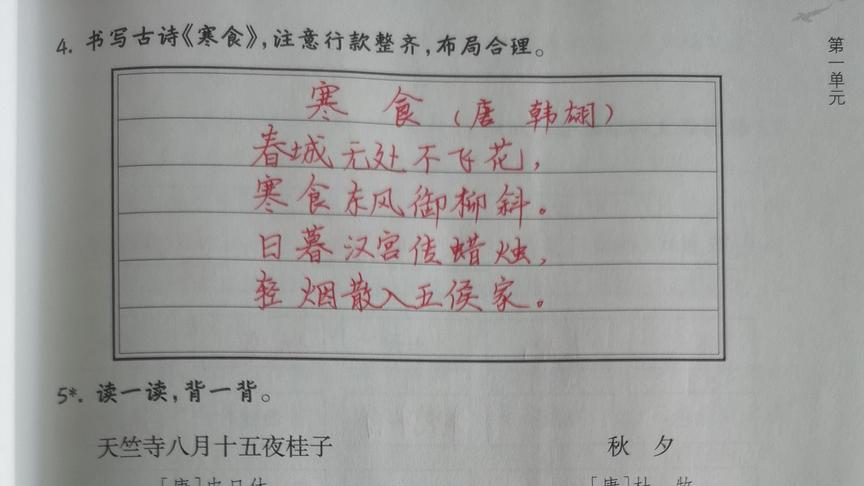 第一单元
4. 书写古诗《寒食》,注意行款整齐,布局合理。
寒 食 (唐 韩翃)
春城无处不飞花,
寒食东风御柳斜。
日暮汉宫传蜡烛,
轻烟散入五侯家。
5*. 读一读,背一背。
天竺寺八月十五夜桂子
秋 夕